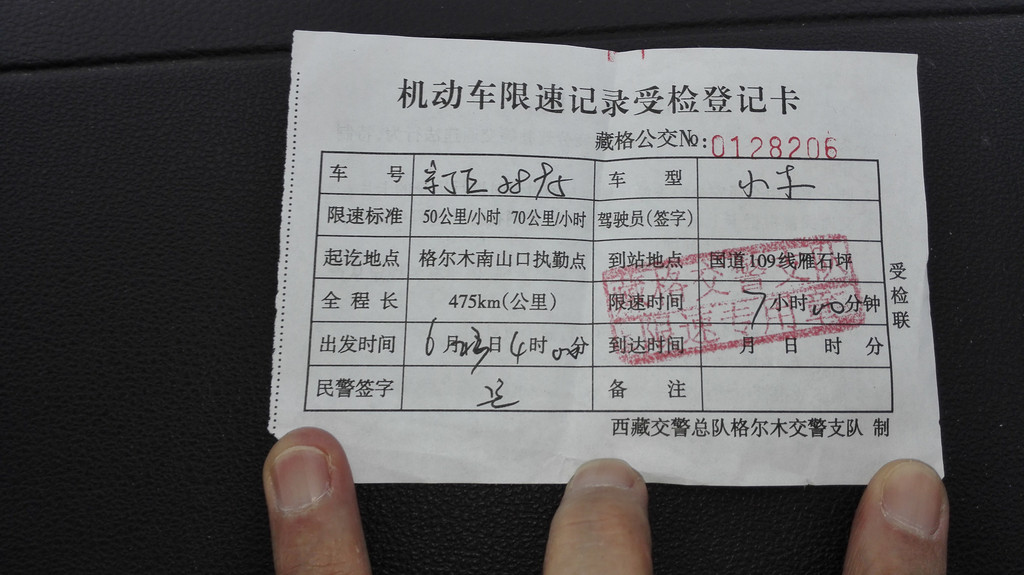 机动车限速记录受检登记卡
藏格公交№:0128206
车 号 车 型 小车
限速标准 50公里/小时 70公里/小时 驾驶员(签字)
起讫地点 格尔木南山口执勤点 到站地点 国道109线雁石坪
全程长 475km(公里) 限速时间 7小时00分钟
出发时间 6月 日4时00分 到达时间 月 日 时 分
民警签字 备 注
受检联
藏格交警支队
限速专用章
西藏交警总队格尔木交警支队 制